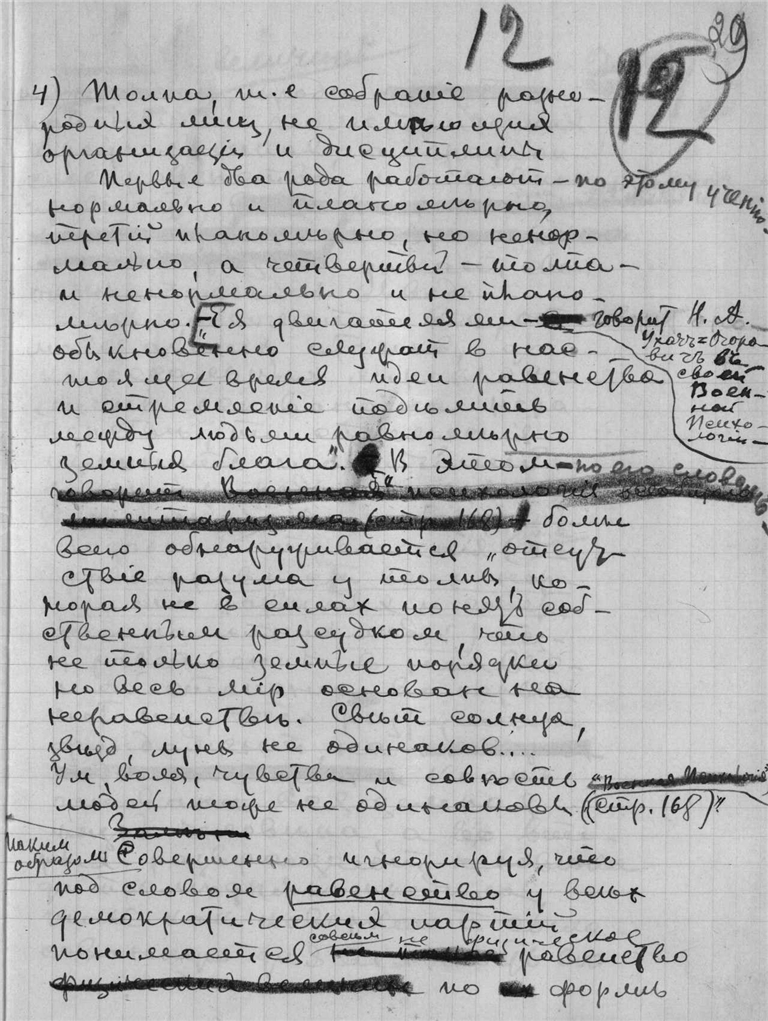 12
29
12
4) Толпа, т.е собраніе разно-
родныхъ лицъ, не имѣющихъ
организаціи и дисциплины
Первые два рода работаютъ – по этому ученію
нормально и планомѣрно,
третій планомѣрно, но ненор-
мально, а четвертый – толпа –
и ненормально и не плано-
мѣрно. „Ея двигателями – говорит Н. А.
Ухачъ=Огоро-
вичъ въ
своей
Воен-
ной
Психо-
логіи –
обыкновенно служатъ в нас-
тоящее время идеи равенства
и стремленіе подѣлить
между людьми равномѣрно
земныя блага". В этом – по его словамъ –
говорит Военная психологія
(стр. 168) больше
всего обнаруживается „отсут-
ствіе разума у толпы, ко-
торая не в силах понять соб-
ственным разсудком, что
не только земные порядки
но весь мір основан на
неравенствѣ. Свѣт солнца,
звѣзд, луны не одинаков....
Ум, воля, чувства и совѣсть "Военная Психологія"
людей тоже не одинаковы (стр. 168)"
таким
образом Совершенно игнорируя, что
под словом равенство у всѣх
демократических партій
понимается совсѣм не физическое равенство
по формѣ